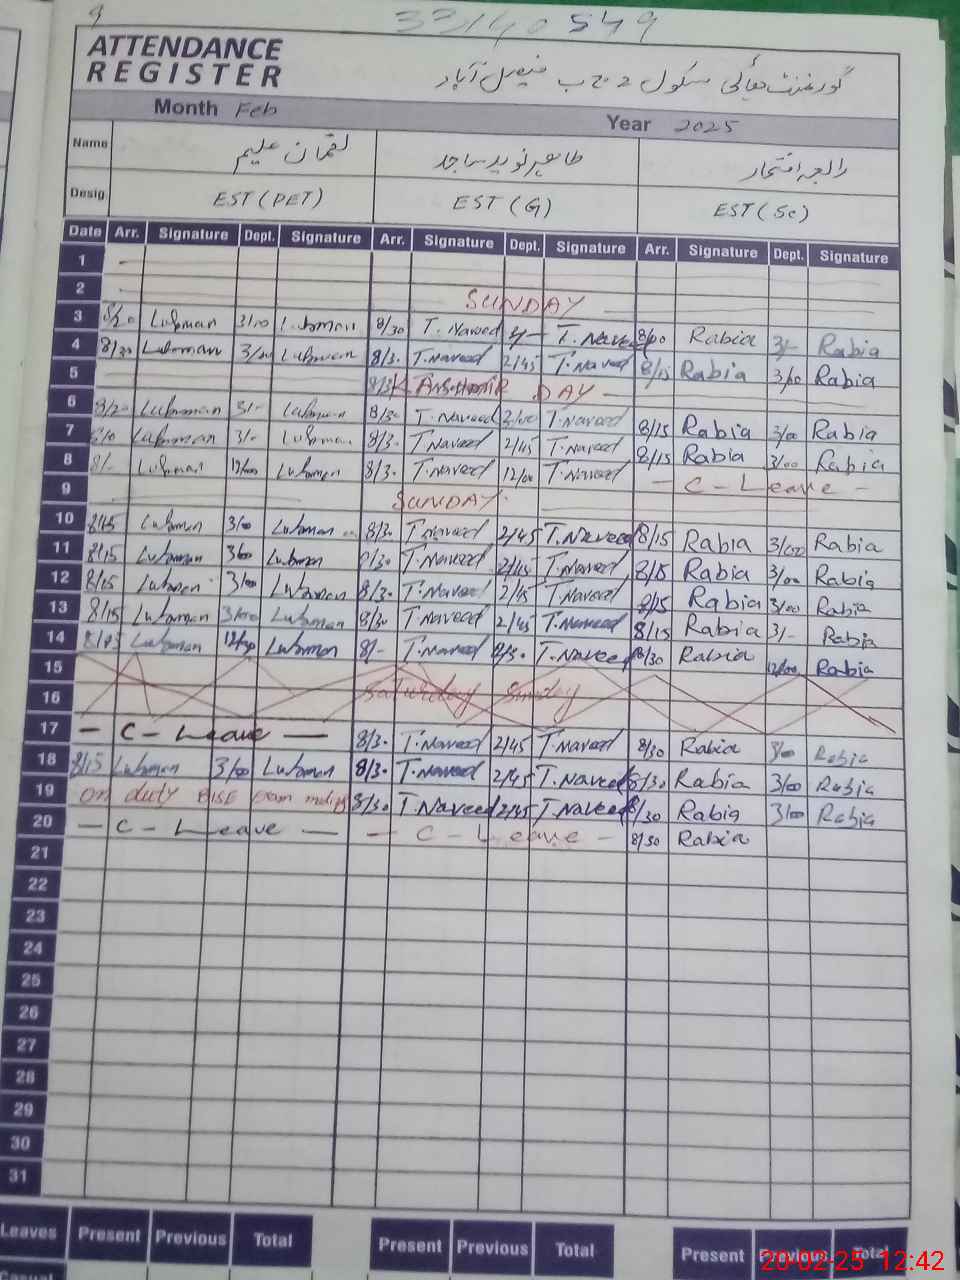 9
33140549
ATTENDANCE
REGISTER
گورنمنٹ ہائی سکول 202 ج ب فیصل آباد
Month Feb Year 2025
Name لقمان علیم طاہر نوید ساجد رابعہ افتخار
Desig. EST (PET) EST (G) EST (Sc)
Date Arr. Signature Dept. Signature Arr. Signature Dept. Signature Arr. Signature Dept. Signature
1
2 SUNDAY
3 8/20 Luqman 3/00 Luqman 8/30 T. Naveed 3/- T. Naveed 8/00 Rabia 3/- Rabia
4 8/30 Luqman 3/00 Luqman 8/3. T.Naveed 2/45 T.Naveed 8/15 Rabia 3/00 Rabia
5 8/3 Kashmir DAY
6 8/20 Luqman 3/- Luqman 8/30 T.Naveed T.Naveed 8/15 Rabia 3/00 Rabia
7 Luqman 3/- Luqman 8/3. T.Naveed 2/45 T.Naveed 8/15 Rabia 3/00 Rabia
8 8/- Luqman 12/00 Luqman 8/3. T.Naveed 12/00 T.Naveed - C - Leave -
9 SUNDAY
10 8/15 Luqman 3/00 Luqman 8/3. T.Naveed 2/45 T.Naveed 8/15 Rabia 3/00 Rabia
11 8/15 Luqman 3/00 Luqman 8/30 T.Naveed 2/45 T.Naveed 8/15 Rabia 3/00 Rabia
12 8/15 Luqman 3/00 Luqman 8/3. T.Naveed 2/45 T.Naveed 8/15 Rabia 3/00 Rabia
13 8/15 Luqman 3/00 Luqman 8/30 T.Naveed 2/45 T.Naveed 8/15 Rabia 3/- Rabia
14 8/15 Luqman 12/30 Luqman 8/- T.Naveed T.Naveed 8/30 Rabia 12/00 Rabia
15
16 Saturday Sunday
17 - C - Leave - 8/3. T.Naveed 2/45 T.Naveed 8/30 Rabia 3/00 Rabia
18 8/15 Luqman 3/00 Luqman 8/3. T.Naveed 2/45 T.Naveed 8/30 Rabia 3/00 Rabia
19 on duty BISE exam 8/30 T.Naveed 2/45 T.Naveed 8/30 Rabia 3/00 Rabia
20 - C - Leave - - C - Leave - 8/30 Rabia
21
22
23
24
25
26
27
28
29
30
31
Leaves Present Previous Total Present Previous Total Present Previous Total
Casual
20-02-25 12:42